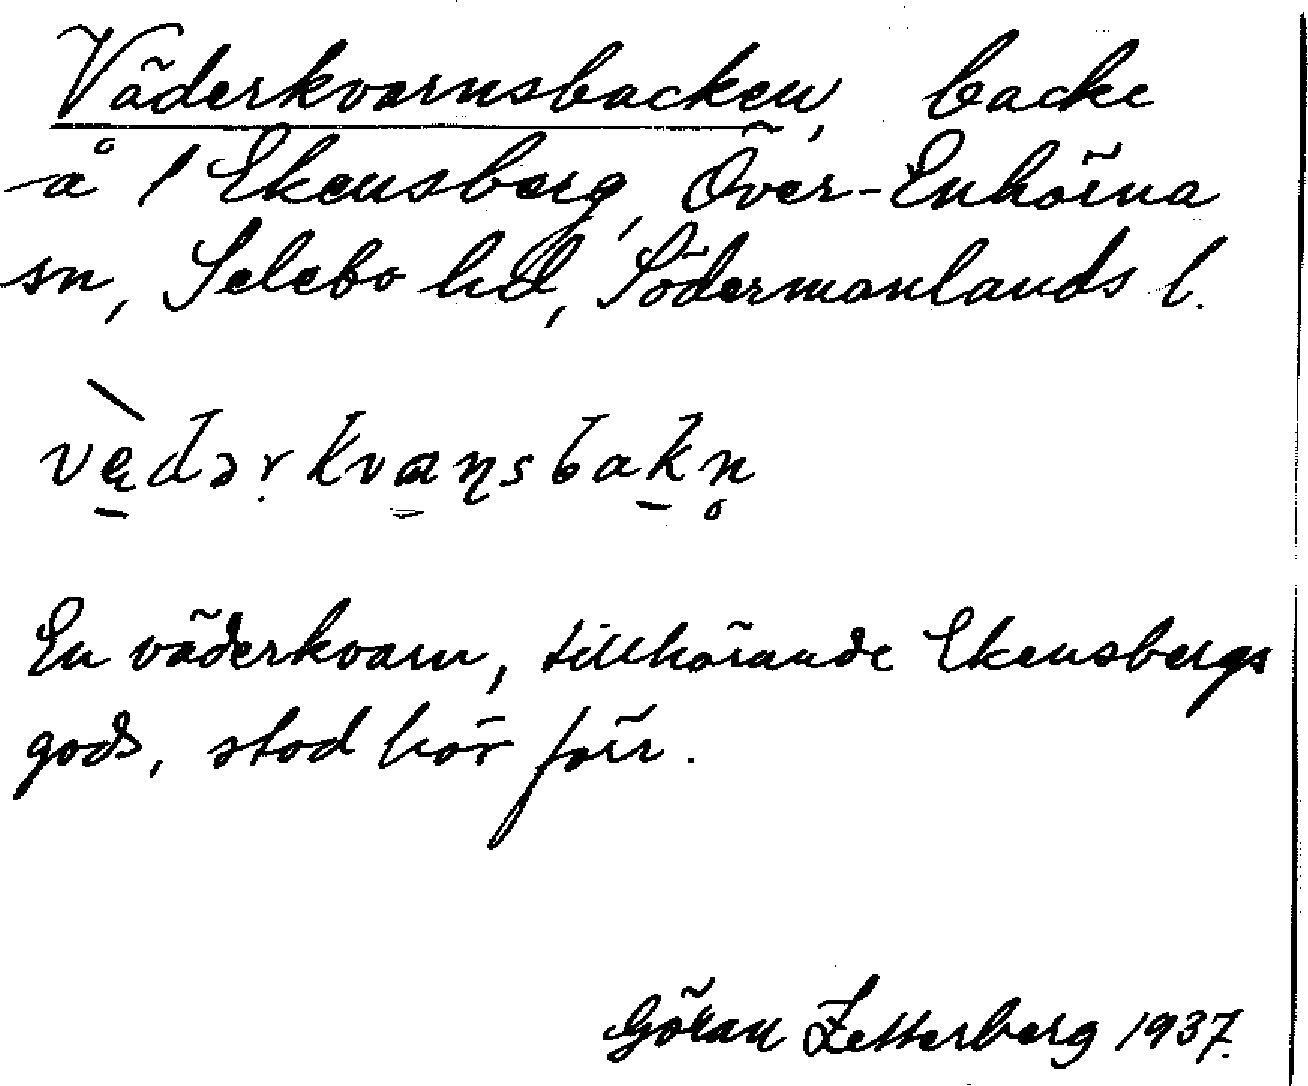 Väderkvarnsbacken, backe
å / Ekensberg, Över-Enhörna
sn, Selebo hd, Södermanlands l.
vędər kvaɳsbakn̥
En väderkvarn, tillhörande Ekensbergs
gods, stod här förr.
Göran Zetterberg 1937.